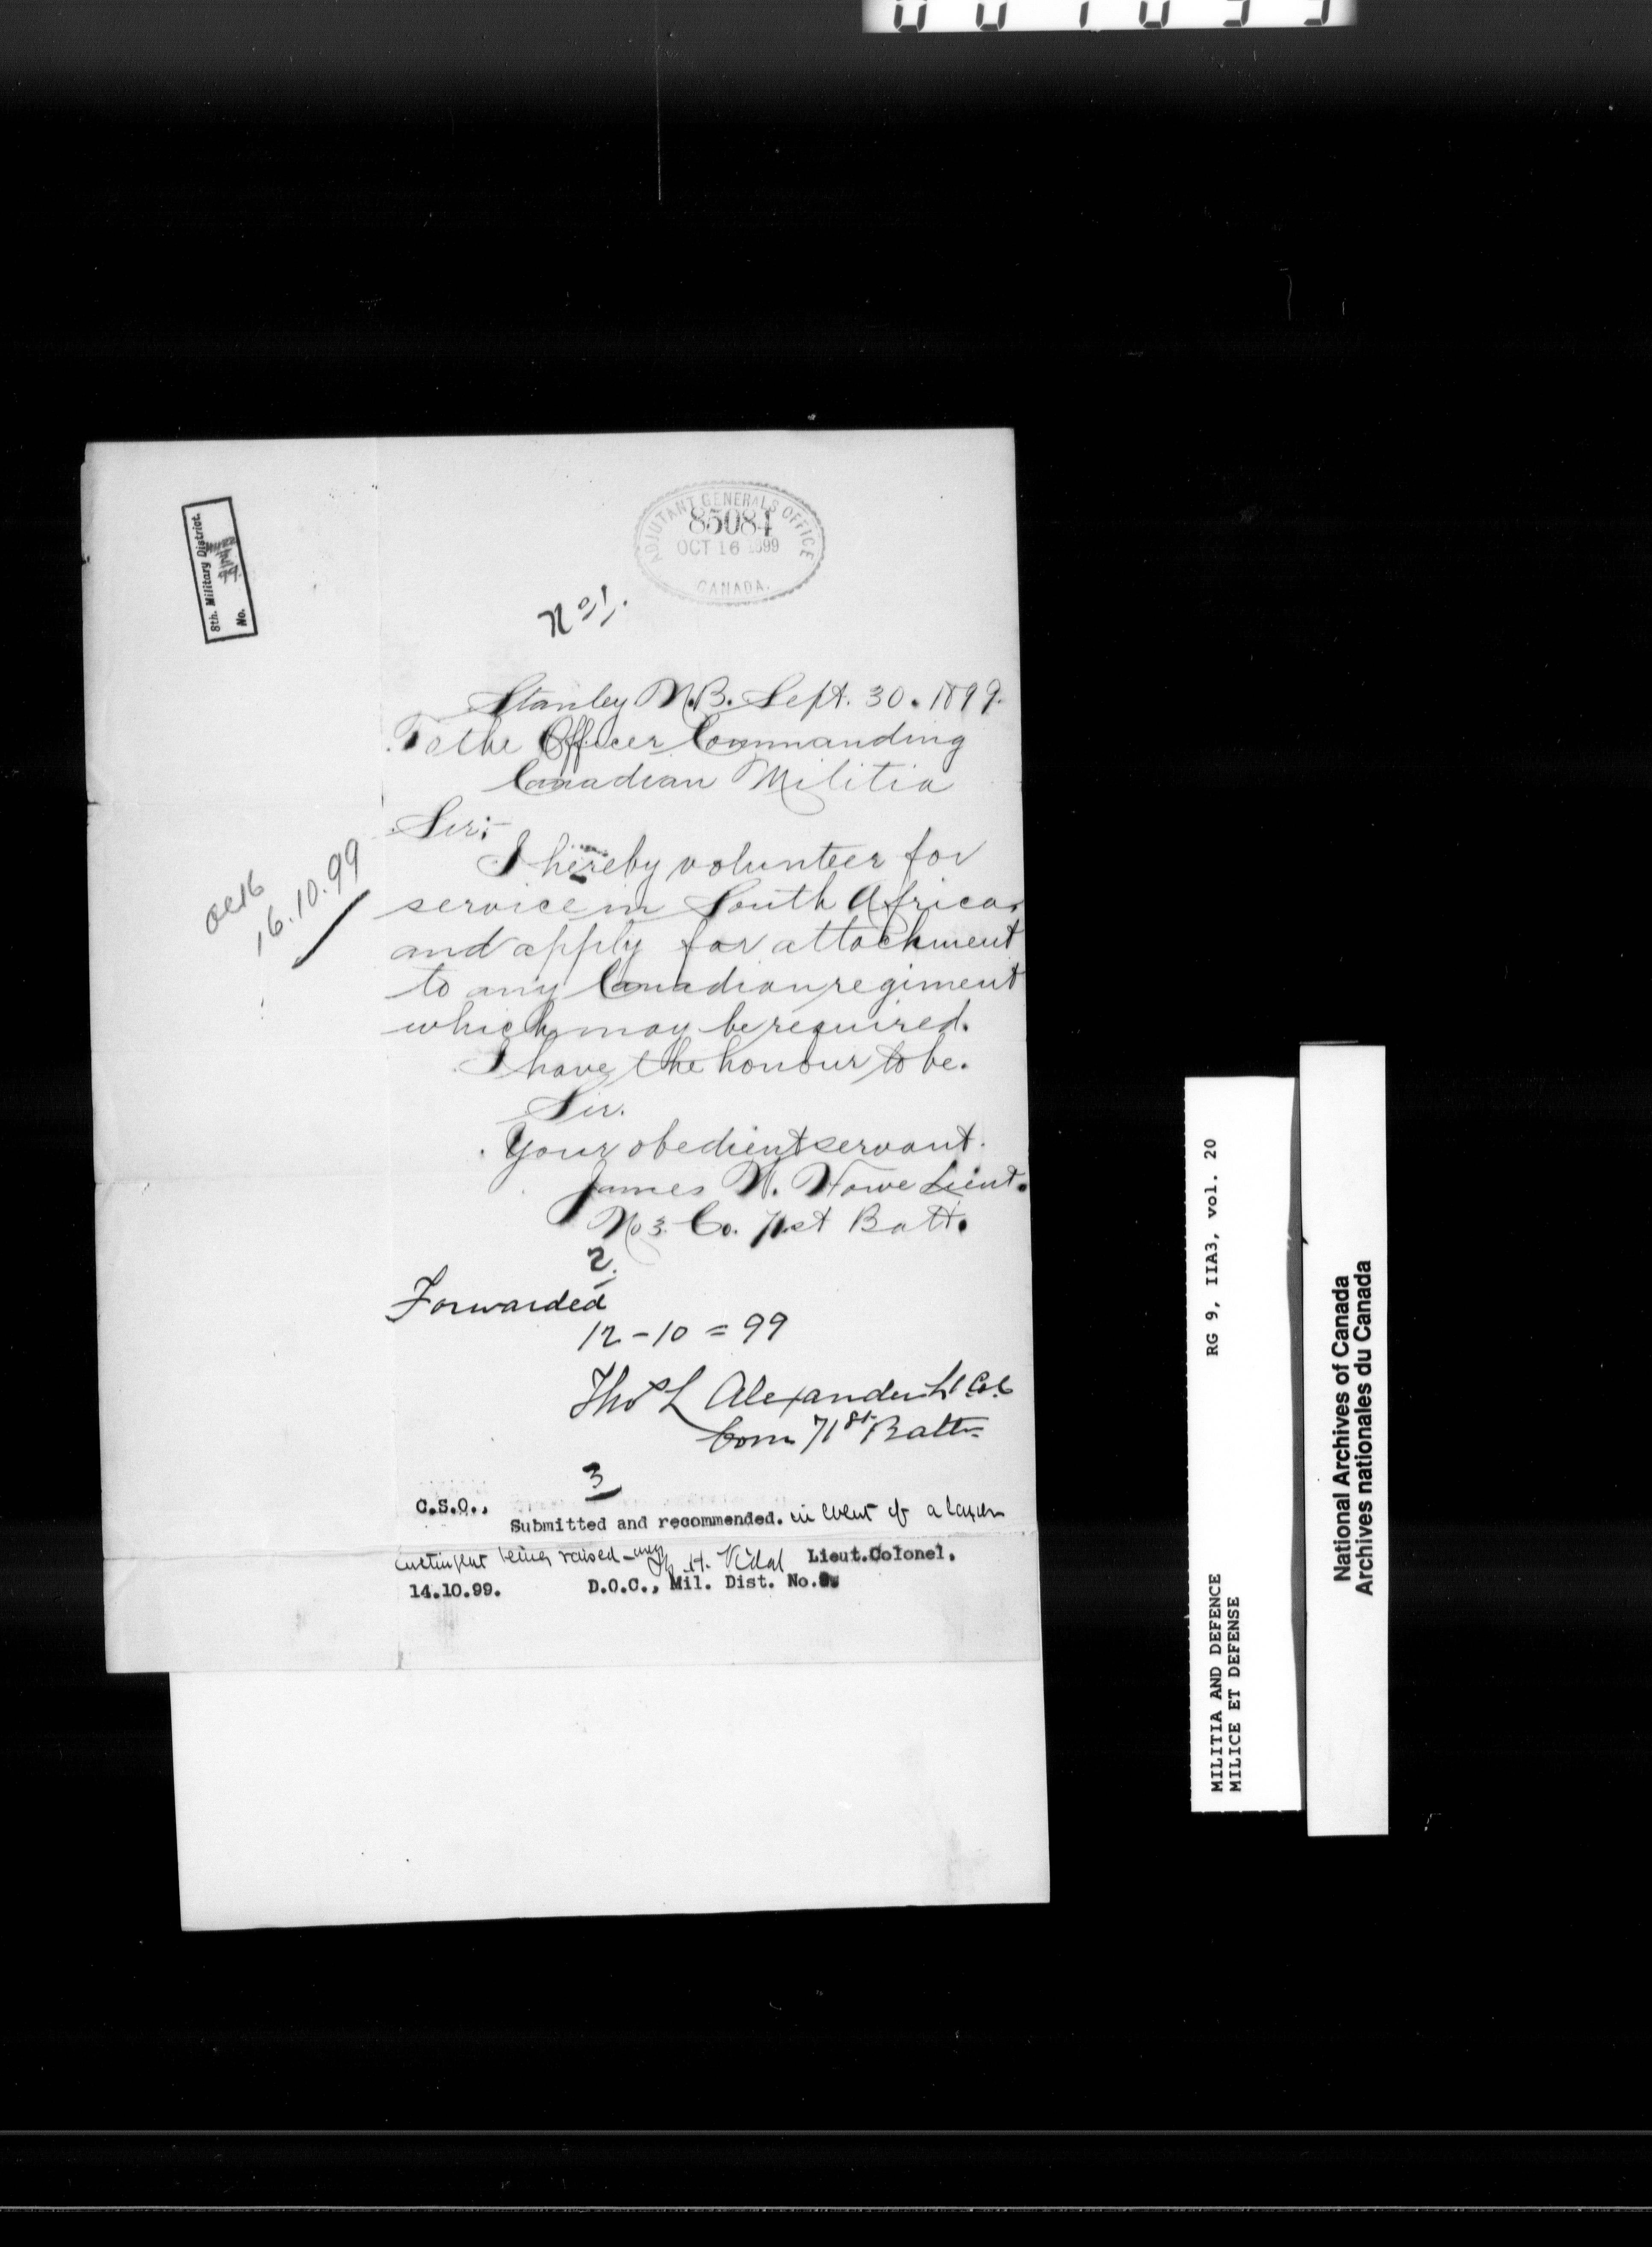 8th. Military District.
No.
ADJUTANT GENERALS OFFICE
85084
OCT 16 1899
CANADA.
No 1.
Stanley N.B. Sept. 30. 1899.
To the Officer Commanding
Canadian Militia
Sir:-
I hereby volunteer for
service in South Africa,
and apply for attachment
to any Canadian regiment
which may be required.
I have the honour to be.
Sir.
Your obedient servant.
James W. Howe Lieut.
No 3. Co. 71st Batt.
16.10.99
2.
Forwarded
12-10=99
Thos L Alexander Lt Col
Com 71st Battn
3
C.S.O.,
Submitted and recommended. in event of a larger
contingent being raised -
H. Vidal Lieut.Colonel.
14.10.99. D.O.C., Mil. Dist. No.
RG 9, IIA3, vol. 20
MILITIA AND DEFENCE
MILICE ET DEFENSE
National Archives of Canada
Archives nationales du Canada